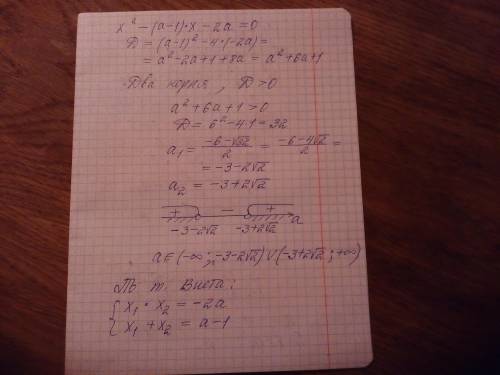 x² - (a-1)·x - 2a = 0
D = (a-1)² - 4·(-2a) =
= a² - 2a + 1 + 8a = a² + 6a + 1
Два корня, D > 0
a² + 6a + 1 > 0
D = 6² - 4·1 = 32
a₁ = (-6-√32)/2 = (-6-4√2)/2 =
= -3-2√2
a₂ = -3+2√2
+ - + a
-3-2√2 -3+2√2
a ∈ (-∞; -3-2√2) ∪ (-3+2√2; +∞)
По т. Виета:
{ x₁ · x₂ = -2a
{ x₁ + x₂ = a-1